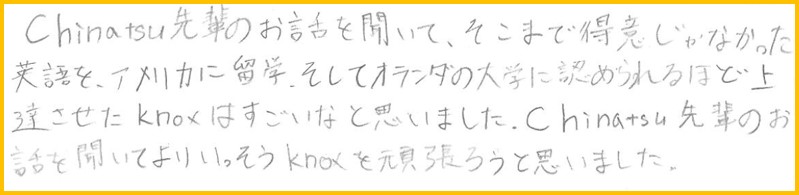 Chinatsu先輩のお話を聞いて、そこまで得意じゃなかった
英語を、アメリカに留学、そしてオランダの大学に認められるほど上
達させたknoxはすごいなと思いました。Chinatsu先輩のお
話を聞いてよりいっそうknoxを頑張ろうと思いました。